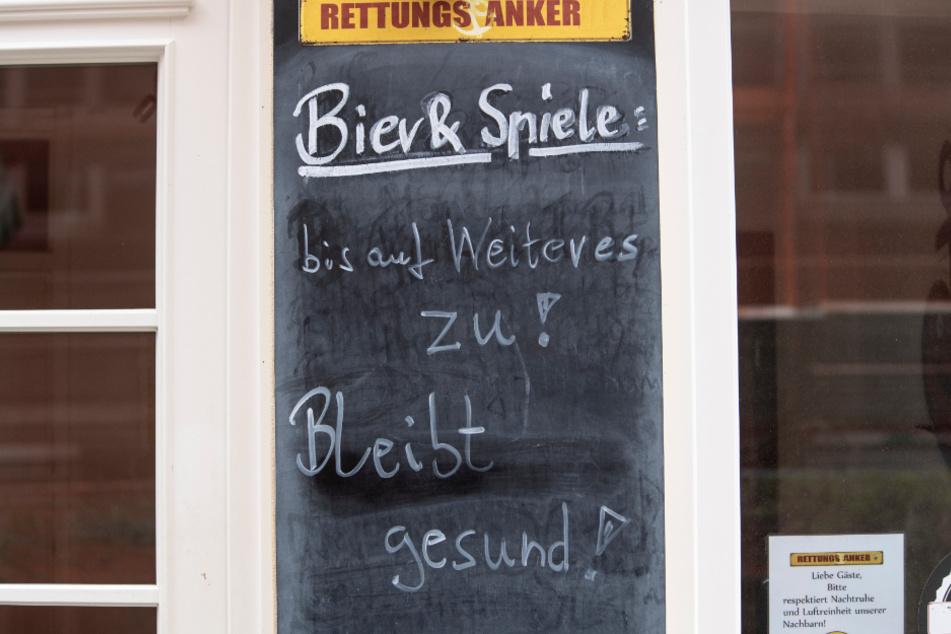 RETTUNGS ANKER
Bier & Spiele:
bis auf Weiteres
zu!
Bleibt
gesund!
RETTUNGS ANKER
Liebe Gäste,
Bitte
respektiert Nachtruhe
und Luftreinheit unserer
Nachbarn!